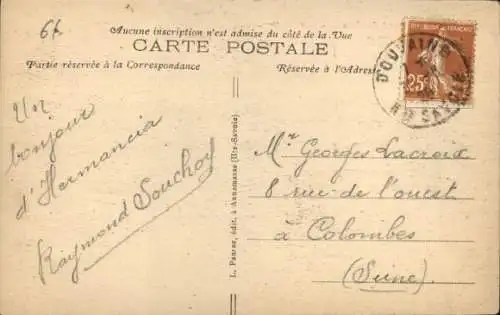 6f
Aucune inscription n'est admise du côté de la Vue
CARTE POSTALE
Partie réservée à la Correspondance
Réservée à l'Adresse
25c
DOUVAINE
Hte SAVOIE
Un
bonjour
d'Hermancia
Raymond Souchoy
L. Paurez, édit. à Annemasse (Hte-Savoie)
Mr Georges Lacroix
8 rue de l'ouest
a Colombes
(Seine)